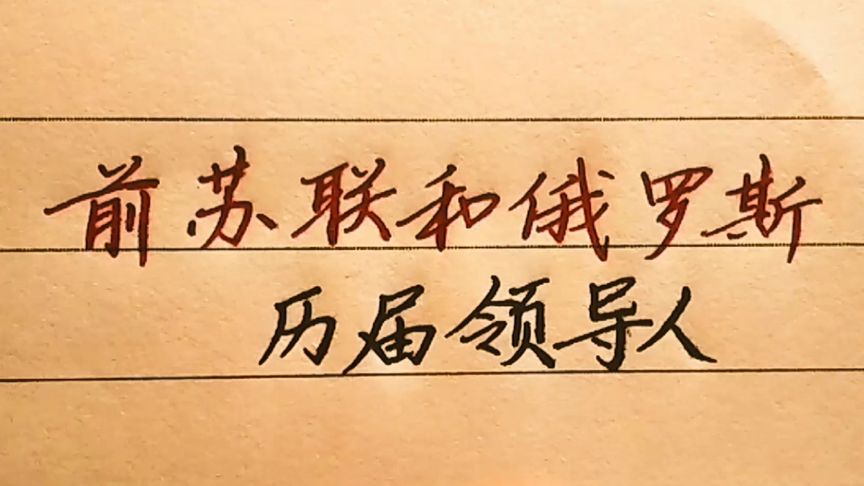 前苏联和俄罗斯
历届领导人